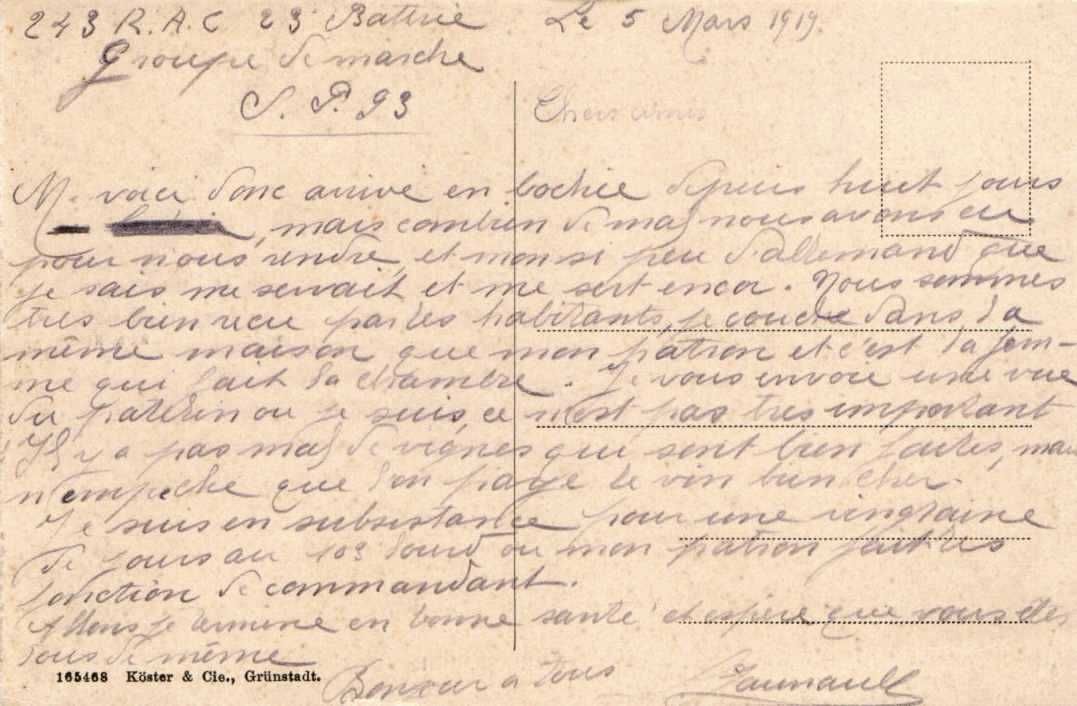 243 R.A.C 23 Batterie Le 5 Mars 1919.
Groupe de marche
S. P. 93
Chers amis
Me voici donc arrivé en bochie depuis huit jours
, mais combien de mal nous avons eu
pour nous rendre, et mon si peu d'allemand que
je sais me servait et me sert encor. Nous sommes
très bien recu par les habitants, je couche dans la
même maison que mon patron et c'est la fem-
me qui fait la chambre. Je vous envoie une vue
du patelin ou je suis, ce n'est pas très important
Il y a pas mal de vignes qui sont bien faites, mais
n'empeche que l'on paye le vin bien cher.
Je suis en subsistance pour une vingtaine
de jours au 109 Lourd ou mon patron fait les
fonction de commandant.
Allons je termine en bonne santé et espère que vous êtes
tous de même
Bonjour a tous
165468 Köster & Cie., Grünstadt.